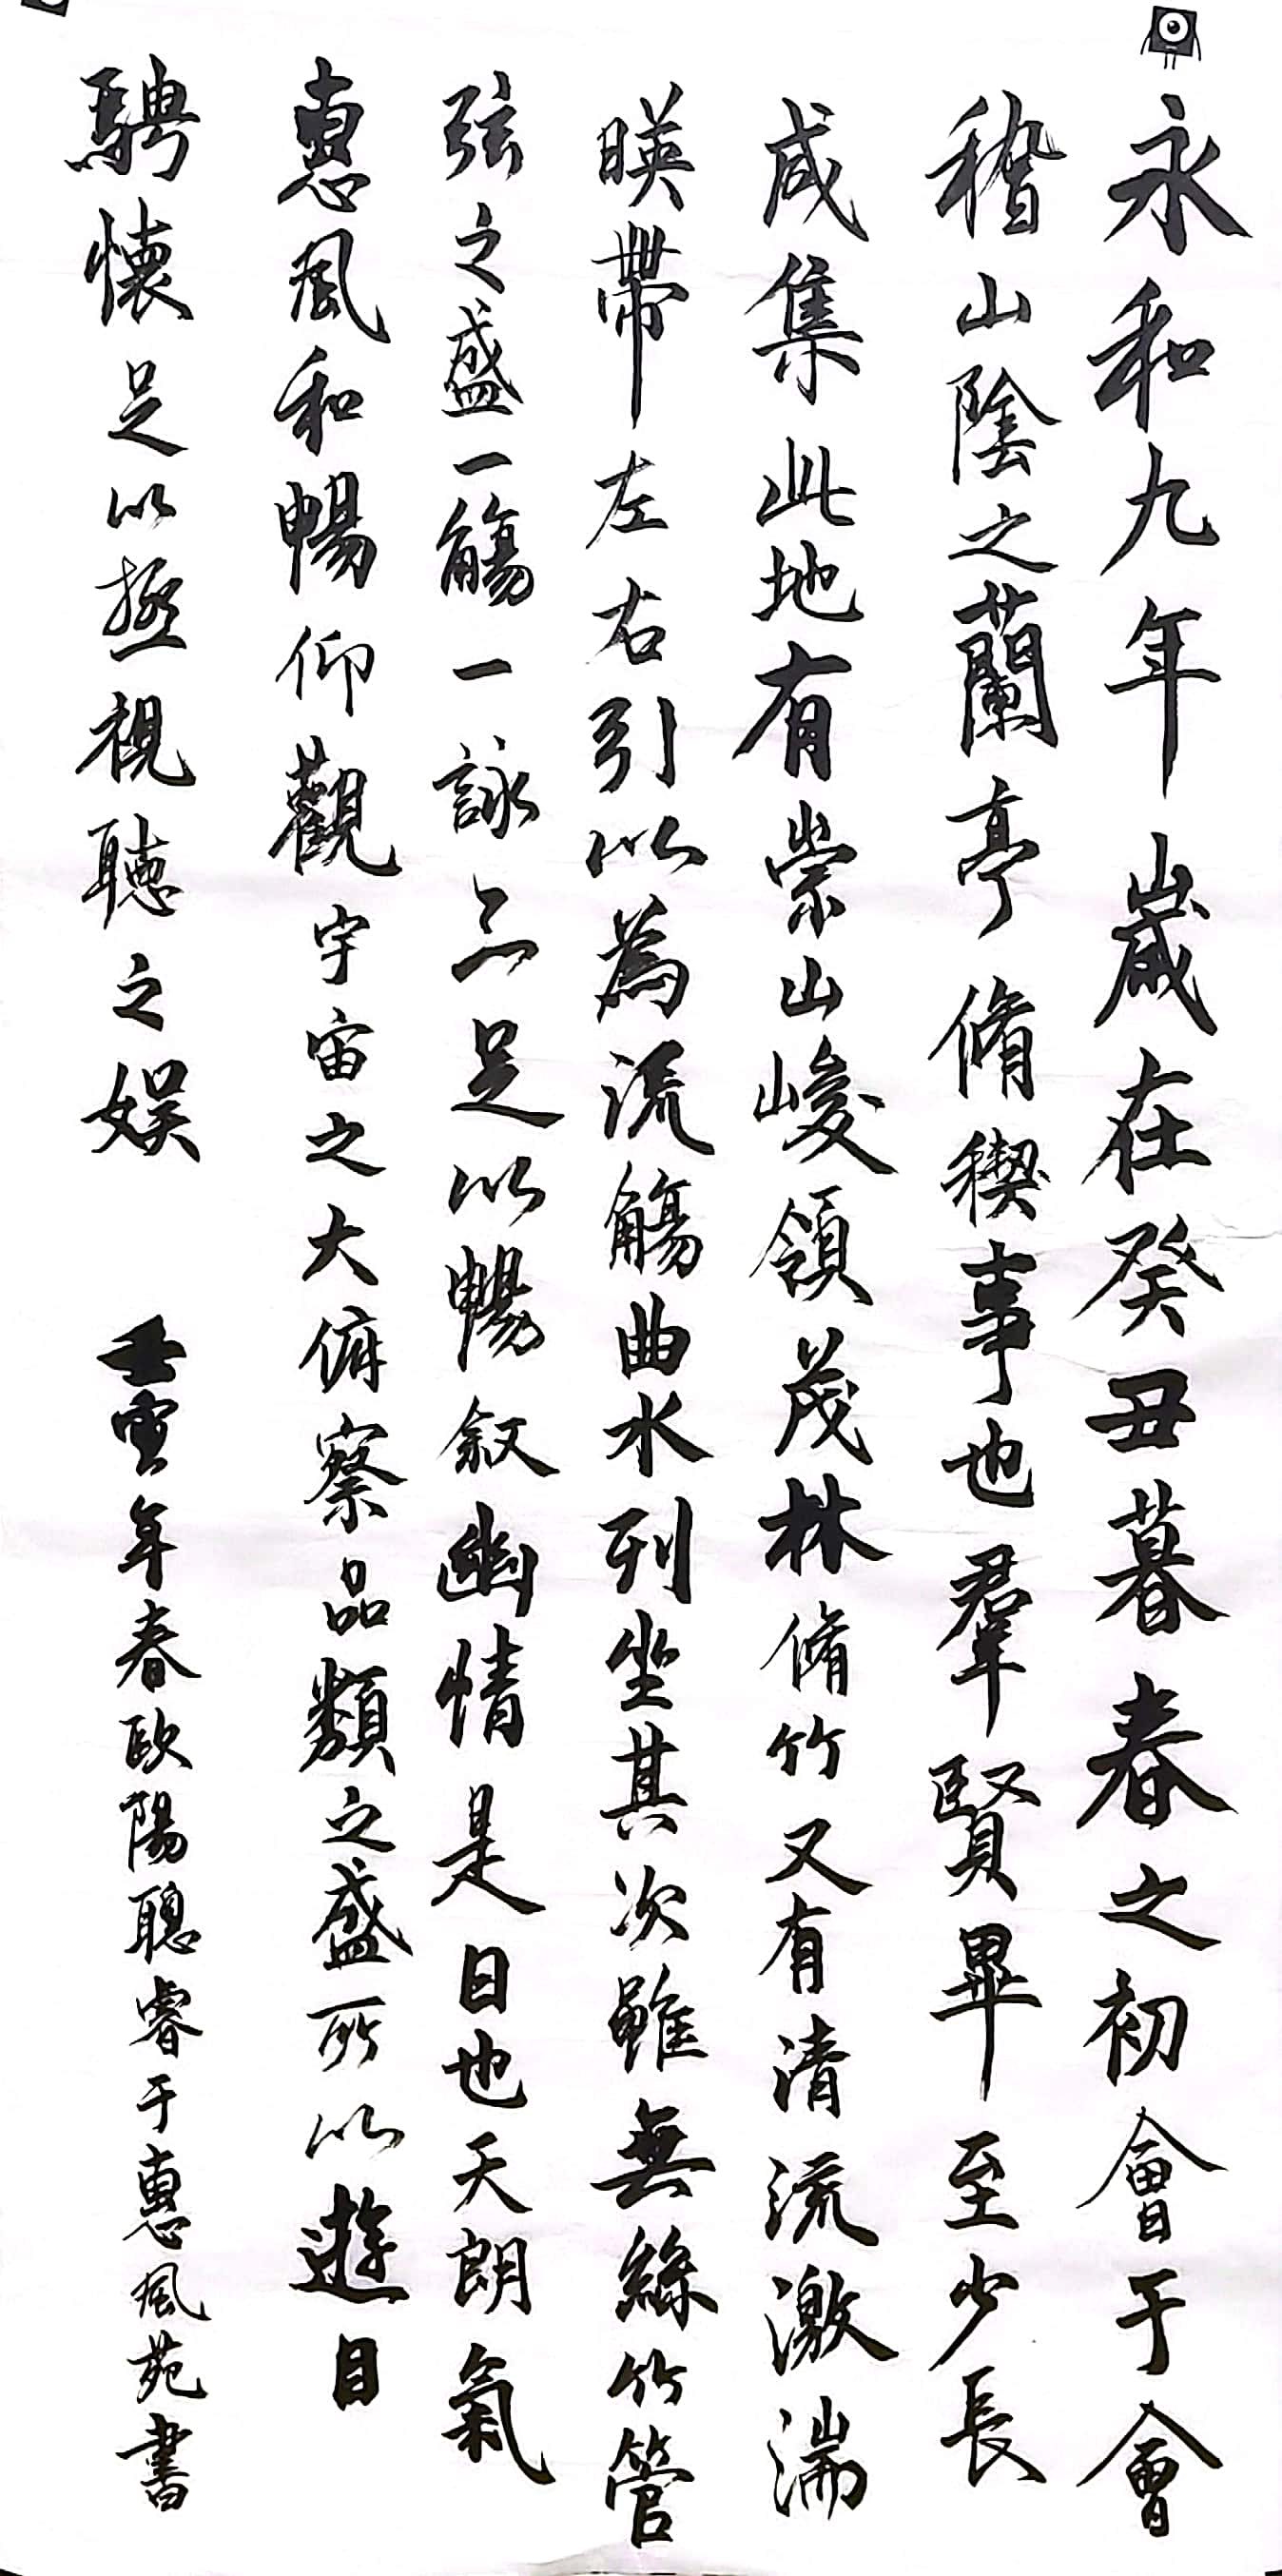 永和九年歲在癸丑暮春之初會于會
稽山陰之蘭亭脩稧事也羣賢畢至少長
咸集此地有崇山峻領茂林脩竹又有清流激湍
暎帶左右引以為流觴曲水列坐其次雖無絲竹管
弦之盛一觴一詠亦足以暢叙幽情是日也天朗氣
惠風和暢仰觀宇宙之大俯察品類之盛所以遊目
騁懷足以極視聽之娱 壬寅年春欧陽聰睿于惠風苑書